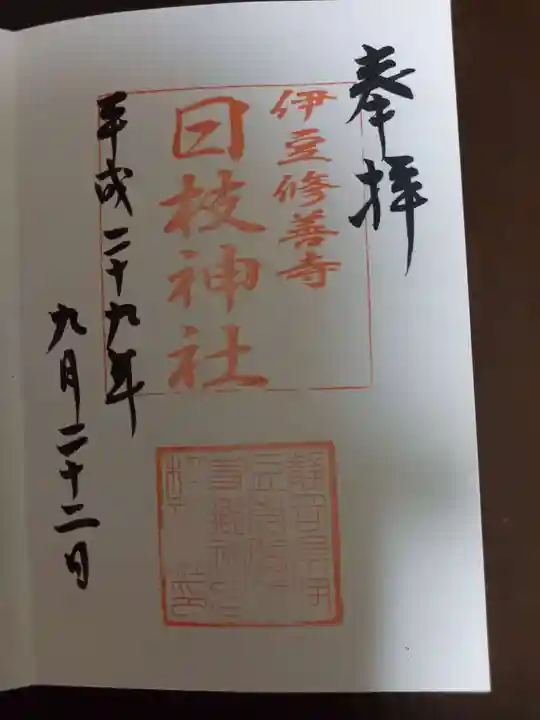 奉拝
伊豆修善寺
日枝神社
平成二十九年
九月二十二日